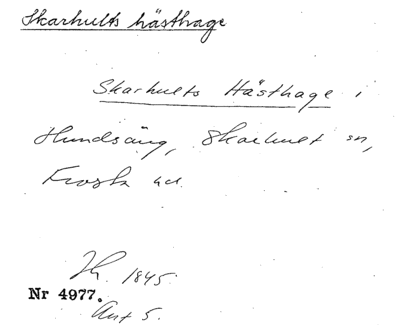 Skarhults hästhage
Skarhults Hästhage i
Hundsäng, Skarhult sn,
Frosta hd.
1845.
Nr 4977.
Akt 5.